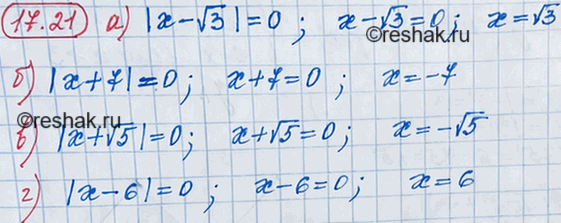 17.21 а) |x-√3|=0; x-√3=0; x=√3
©reshak.ru
б) |x+7|=0; x+7=0; x=-7
©reshak.ru
в) |x+√5|=0; x+√5=0; x=-√5
г) |x-6|=0; x-6=0; x=6